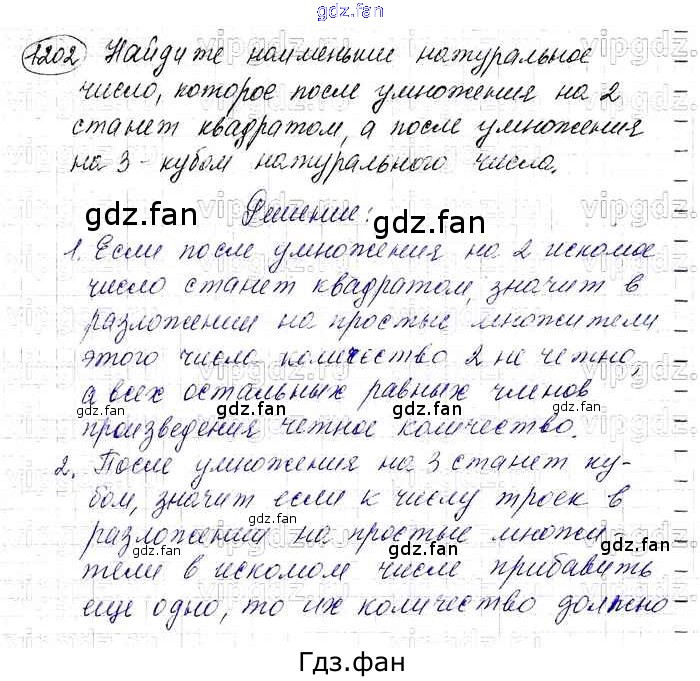 gdz.fan
1202 Найдите наименьшее натуральное
число, которое после умножения на 2
станет квадратом, а после умножения
на 3 - кубом натурального числа.
gdz.fan gdz.fan
Решение:
1. Если после умножения на 2 искомое
число станет квадратом, значит в
разложении на простые множители
этого числа количество 2 не четно,
а всех остальных равных членов
gdz.fan gdz.fan gdz.fan
произведения четное количество.
2. После умножения на 3 станет ку-
бом, значит если к числу троек в
gdz.fan
разложении на простые множи
gdz.fan gdz.fan
тели в искомом числе прибавить
еще одно, то их количество должно
Гдз.фан